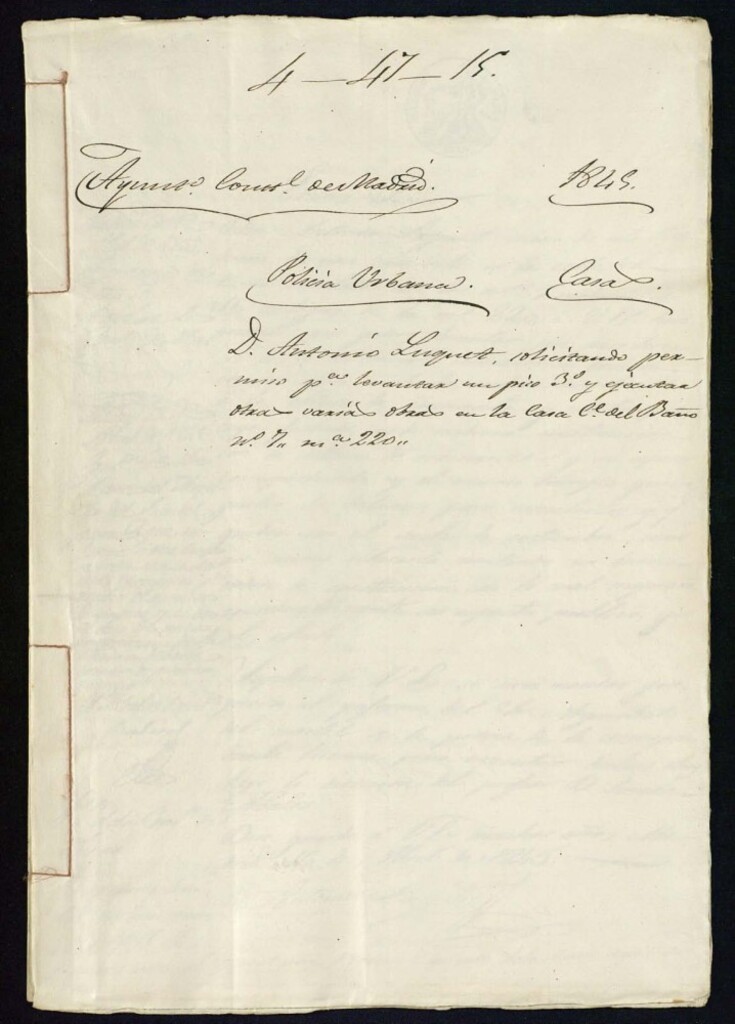 4 — 47 — 15.
Ayunto. Constl. de Madrid. 1845.
Policia Urbana. Casas.
D. Antonio Luquet, solicitando per-
miso pa. levantar un piso 3o. y ejecutar
otras varias obras en la Casa Ce. del Baño
no. 7,, ma. 220,,